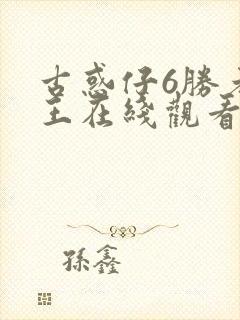 古惑仔6勝者
王在綫觀看
孫鑫